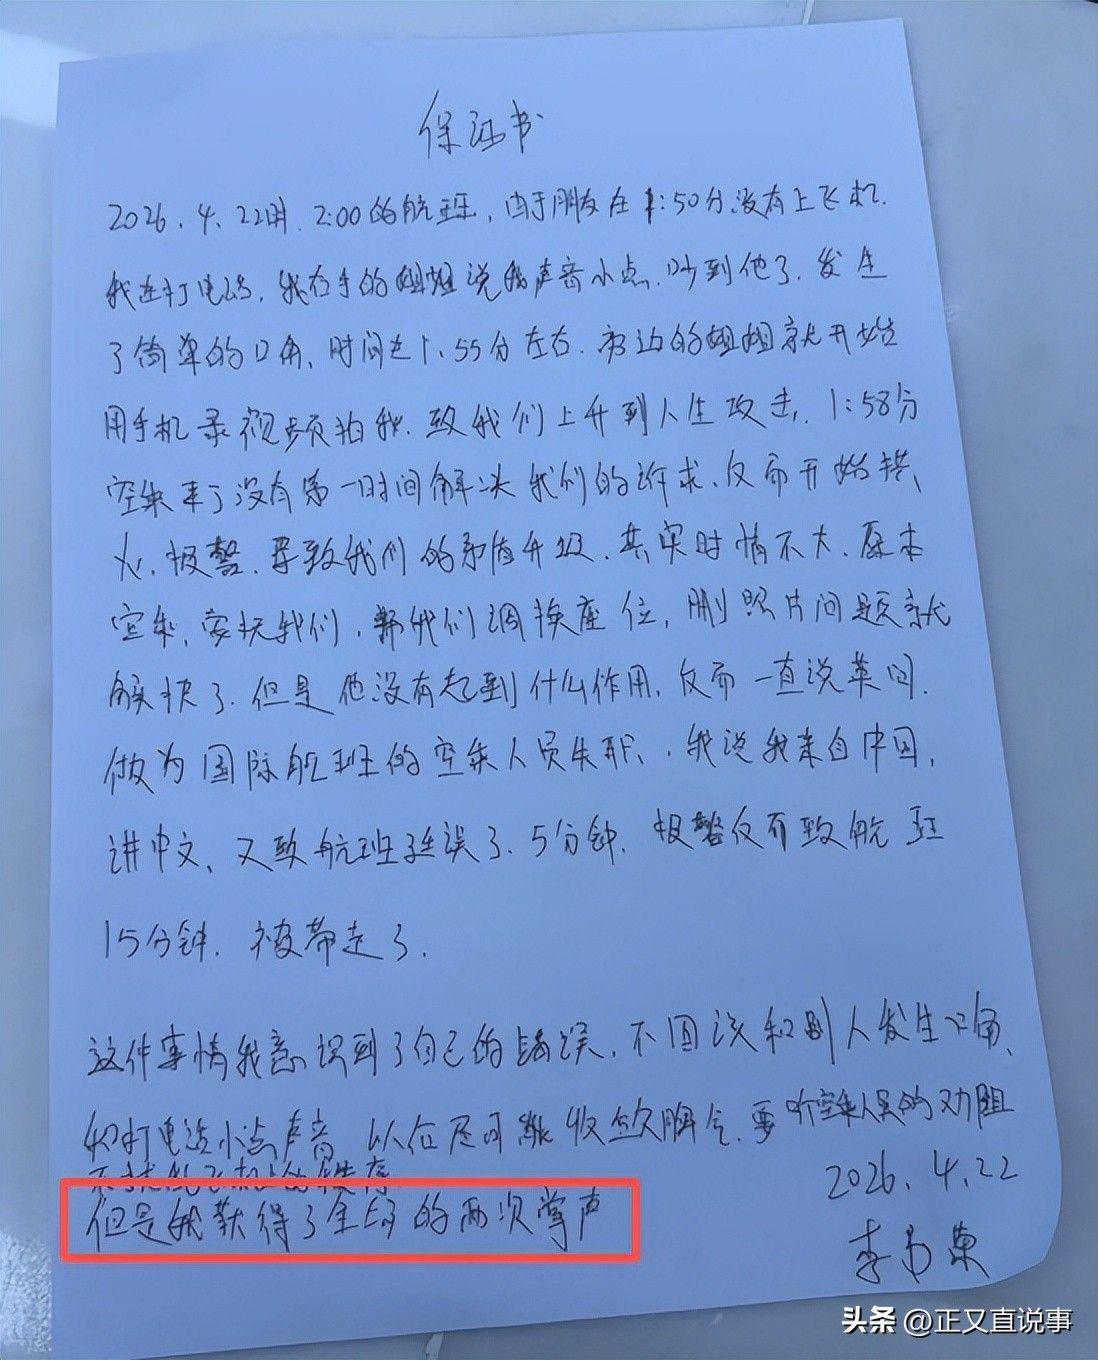 保证书
2026.4.22时.2:00的航班,由于朋友在1:50分没有上飞机.
我在打电话,我右手的姐姐说我声音小点.吵到他了.发生
了简单的口角,时间是1.55分左右.旁边的姐姐就开始
用手机录视频拍我.致我们上升到人生攻击,1:58分
空乘来了没有第一时间解决我们的诉求、反而开始拱
火.报警.导致我们的矛盾升级.其实时情不大.原本
空乘,安抚我们,帮我们调换座位,删照片问题就
解决了.但是他没有起到什么作用,反而一直说英国.
做为国际航班的空乘人员失职.我说我来自中国,
讲中文、又致航班延误了.5分钟.报警仅有致航班
15分钟.被带走了.
这件事情我意识到了自己的错误,不因该和别人发生口角、
和打电话小点声音 以后尽可能收敛脾气.要听空乘人员的劝阻
不扰乱飞机上的秩序
2026.4.22
但是我获得了全场的两次掌声
头条 @正又直说事